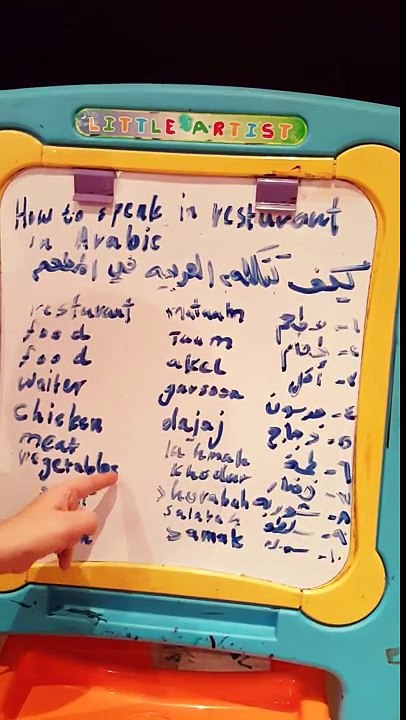 LITTLE ARTIST
How to speak in resturant
in Arabic
كيف نتكلم العربيه في المطعم
resturant mataam
food Taam
food akel
waiter garsoon
chicken dajaj دجاج
meat lahmah
vegetables khodar
shorabah شوربه
salatah سلطه
samak سمك